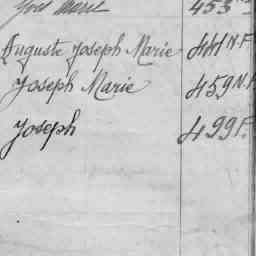 Yves Marie 453
Auguste Joseph Marie 441 N.F.
Joseph Marie 459 N.F.
Joseph 499 F.